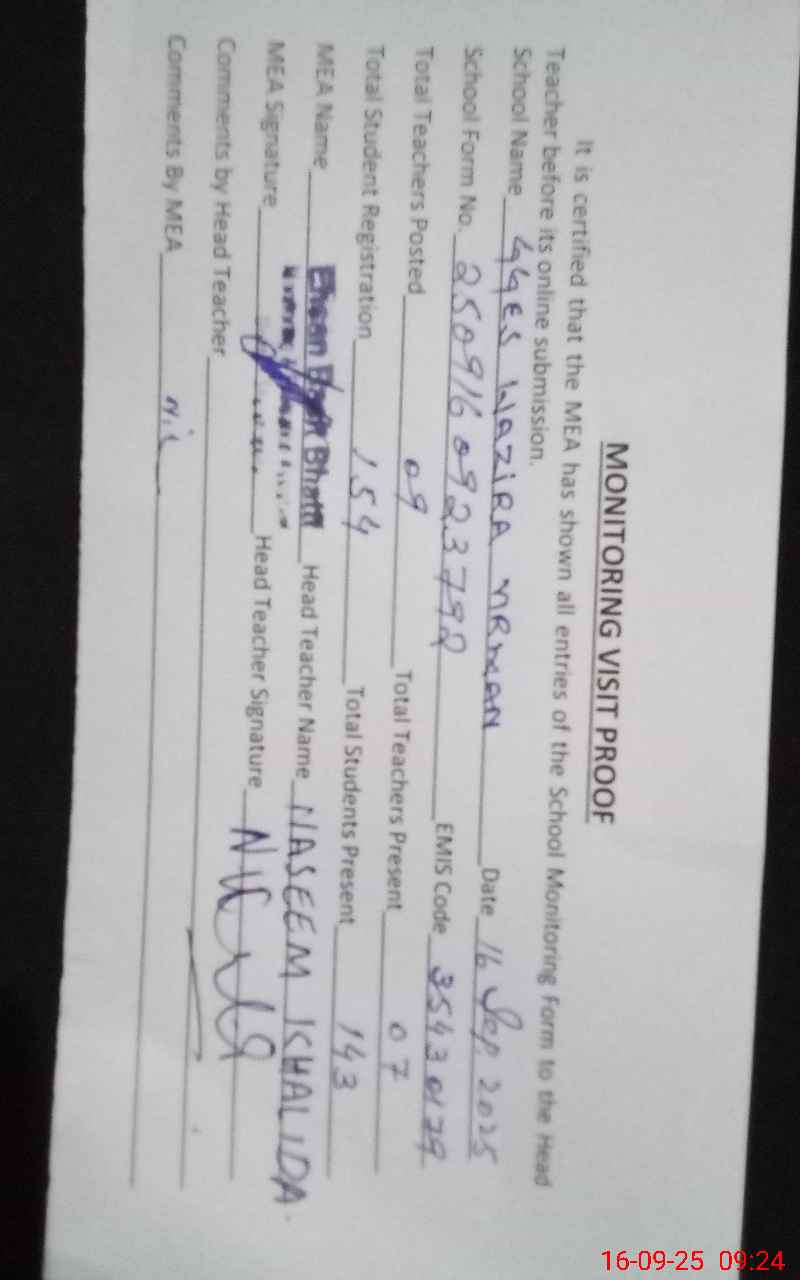 MONITORING VISIT PROOF
It is certified that the MEA has shown all entries of the School Monitoring Form to the Head
Teacher before its online submission.
School Name GGES WAZIRA Date 16 Sep 2025
School Form No. 2509160923792 EMIS Code 35430179
Total Teachers Posted 09 Total Teachers Present 07
Total Student Registration 154 Total Students Present 143
MEA Name Bhatti Head Teacher Name NASEEM KHALIDA.
MEA Signature Head Teacher Signature
Comments by Head Teacher
Comments By MEA Nil
16-09-25 09:24